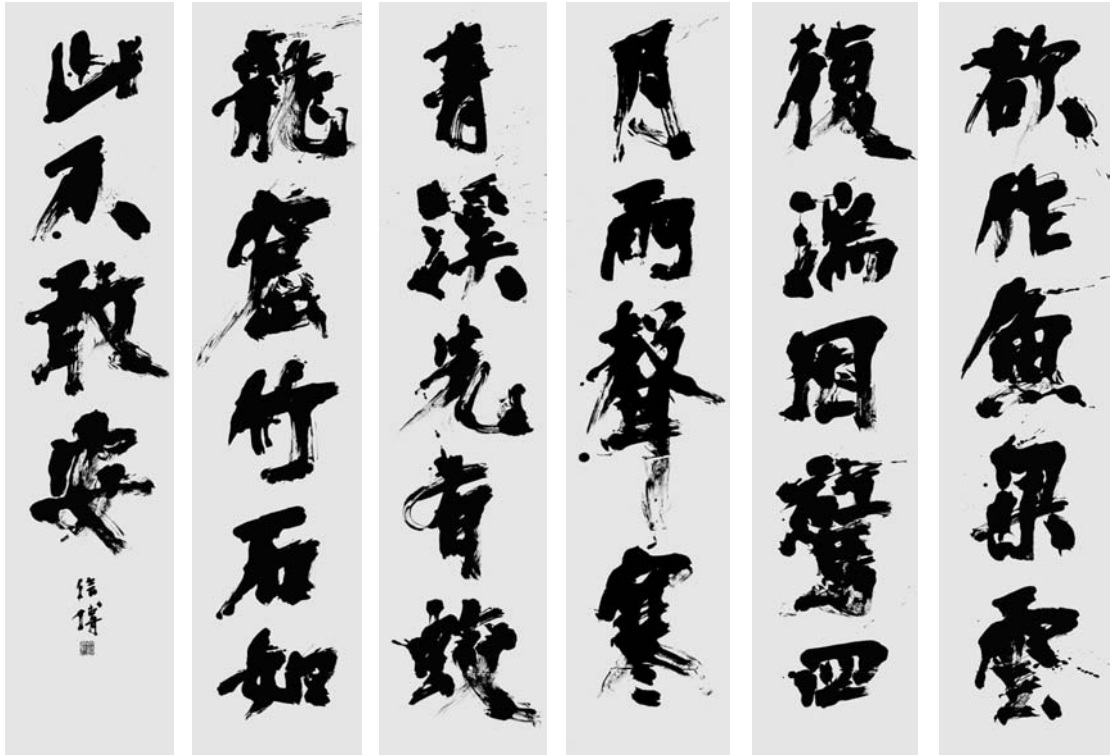 欲作魚梁雲
復湍因驚四
月雨聲寒
青溪先有蛟
龍窟竹石如
山不敢安